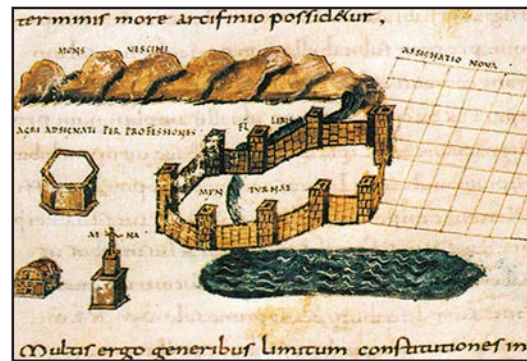 terminis more arcifinio possidetur,
MONS VESCINI
ASSIGNATIO NOVA
AGRI ADSIGNATI PER PROFESSIONES FL LIRIS
MYN TVRNAS
AE NA
Multis ergo generibus limitum constitutiones in